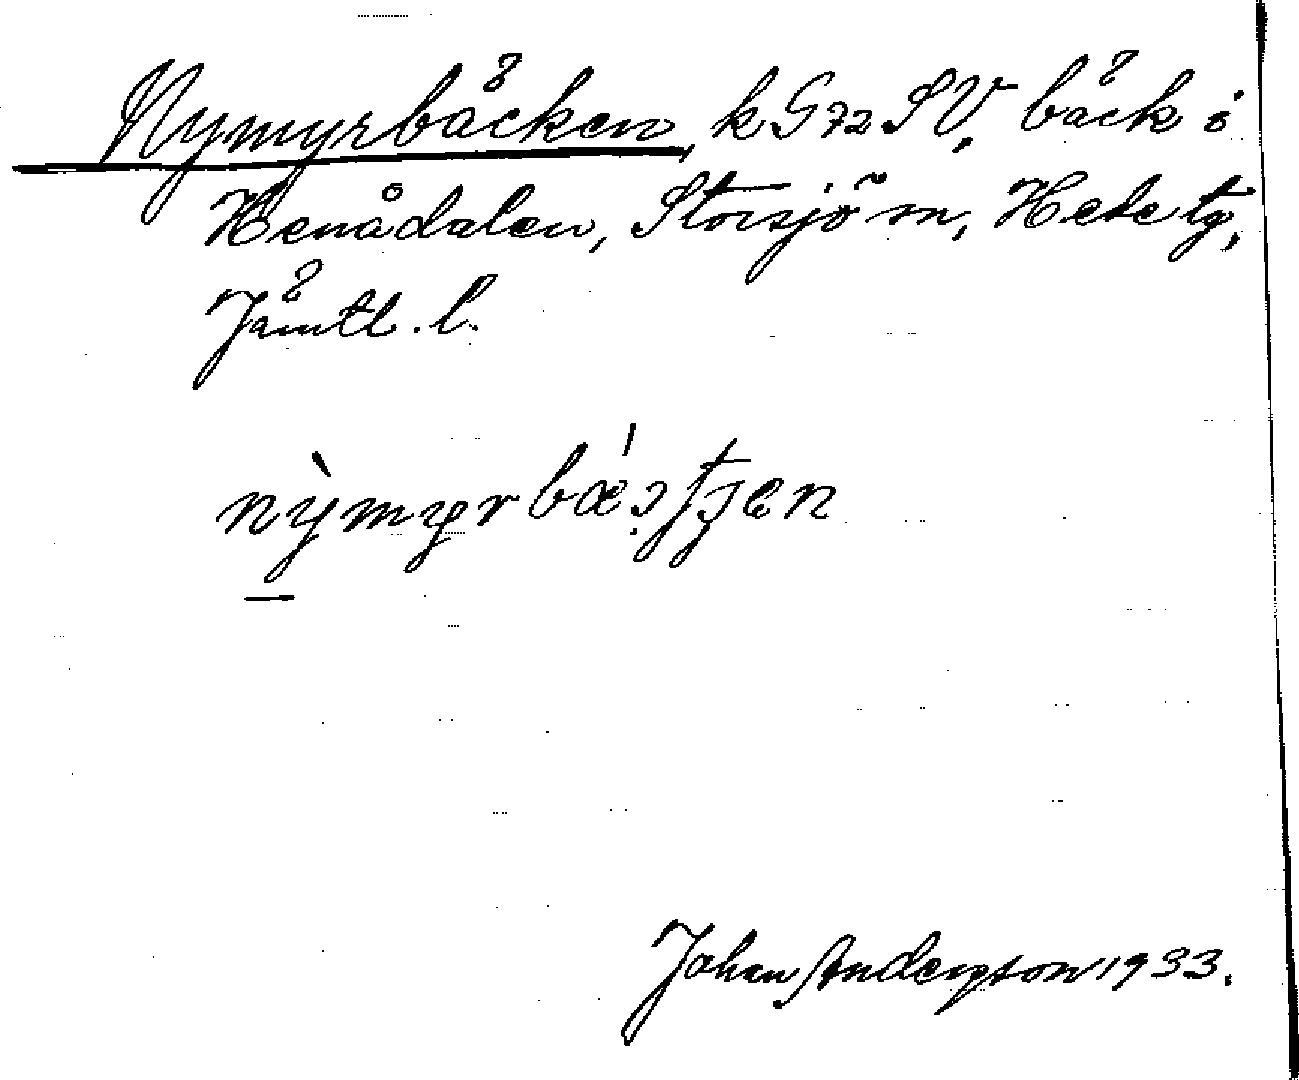 Nymyrbäcken, k G 72 SV, bäck i
Henådalen, Storsjö sn, Hede tg,
Jämtl. l.
Johan Anderson 1933.